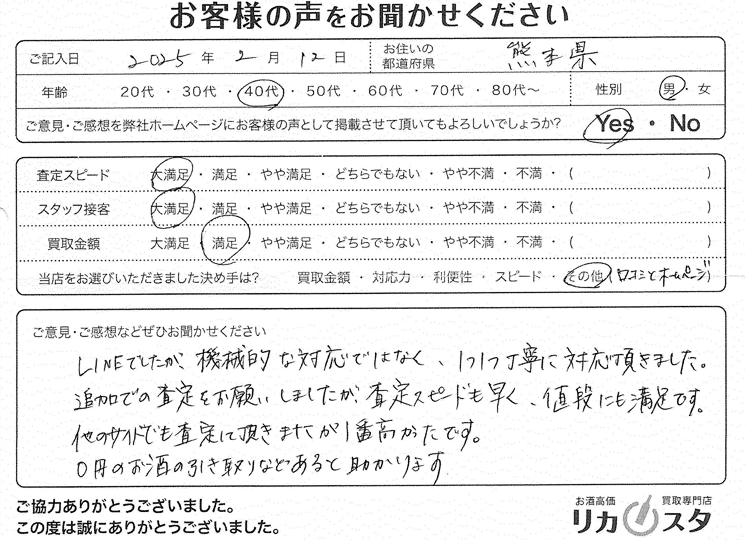 お客様の声をお聞かせください
ご記入日 2025 年 2 月 12 日 お住いの都道府県 熊本県
年齢 20代 ・ 30代 ・ 40代 ・ 50代 ・ 60代 ・ 70代 ・ 80代～ 性別 男 ・ 女
ご意見・ご感想を弊社ホームページにお客様の声として掲載させて頂いてもよろしいでしょうか? Yes ・ No
査定スピード 大満足 ・ 満足 ・ やや満足 ・ どちらでもない ・ やや不満 ・ 不満 ・ ( )
スタッフ接客 大満足 ・ 満足 ・ やや満足 ・ どちらでもない ・ やや不満 ・ 不満 ・ ( )
買取金額 大満足 ・ 満足 ・ やや満足 ・ どちらでもない ・ やや不満 ・ 不満 ・ ( )
当店をお選びいただきました決め手は? 買取金額 ・ 対応力 ・ 利便性 ・ スピード ・ その他 (口コミとホームページ)
ご意見・ご感想などぜひお聞かせください
LINEでしたが、機械的な対応ではなく、1つ1つ丁寧に対応頂きました。
追加での査定をお願いしましたが、査定スピードも早く、値段にも満足です。
他のサイトでも査定して頂きましたが1番高かったです。
0円のお酒の引き取りなどあると助かります
ご協力ありがとうございました。
この度は誠にありがとうございました。
お酒高価 買取専門店
リカスタ